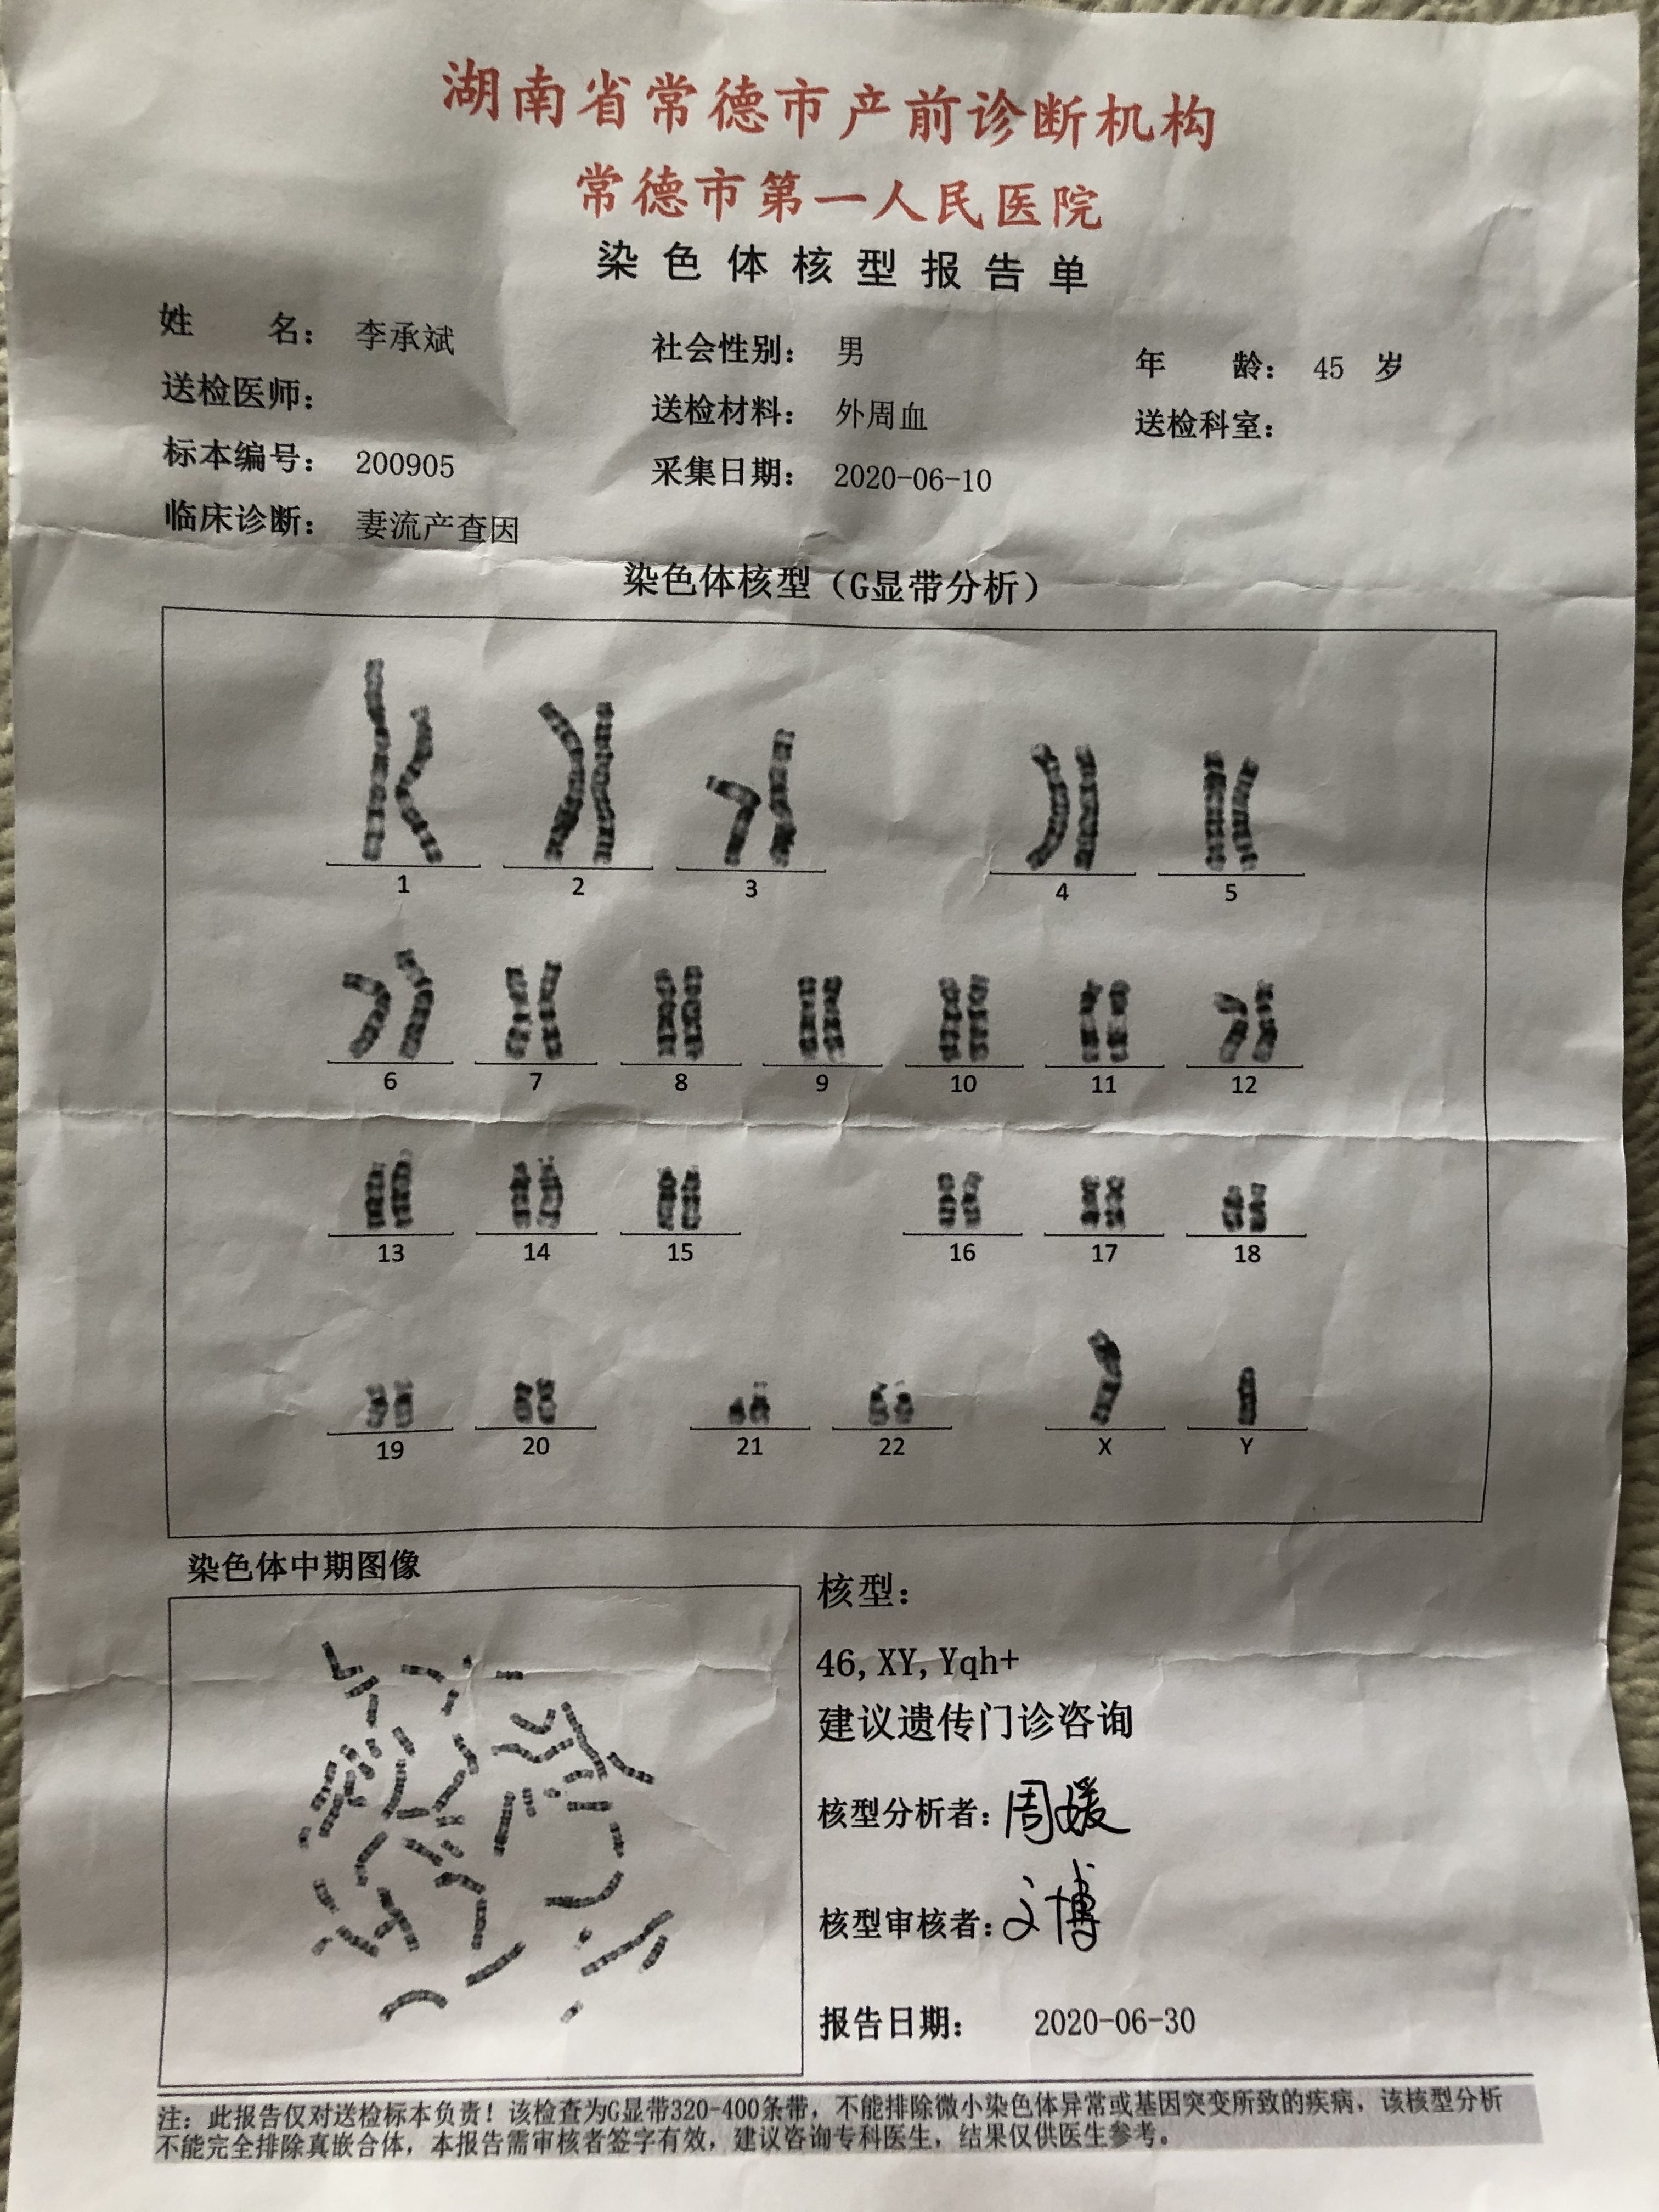 湖南省常德市产前诊断机构
常德市第一人民医院
染色体核型报告单
姓 名： 李承斌 社会性别： 男 年 龄： 45 岁
送检医师： 送检材料： 外周血 送检科室：
标本编号： 200905 采集日期： 2020-06-10
临床诊断： 妻流产查因
染色体核型（G显带分析）
1 2 3 4 5
6 7 8 9 10 11 12
13 14 15 16 17 18
19 20 21 22 X Y
染色体中期图像
核型：
46,XY,Yqh+
建议遗传门诊咨询
核型分析者：周媛
核型审核者：文博
报告日期： 2020-06-30
注：此报告仅对送检标本负责！该检查为G显带320-400条带，不能排除微小染色体异常或基因突变所致的疾病，该核型分析
不能完全排除真嵌合体，本报告需审核者签字有效，建议咨询专科医生，结果仅供医生参考。